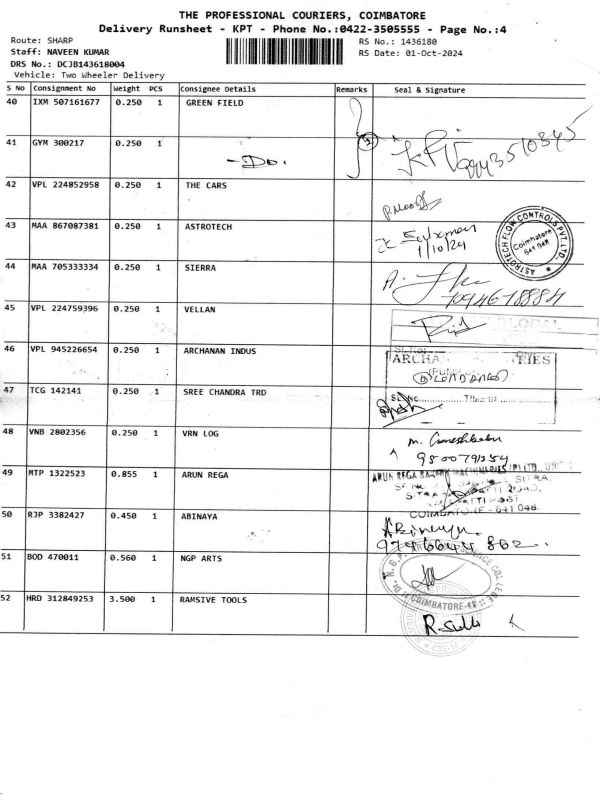 THE PROFESSIONAL COURIERS, COIMBATORE
Delivery Runsheet - KPT - Phone No.:0422-3505555 - Page No.:4
Route: SHARP
RS No.: 1436180
Staff: NAVEEN KUMAR
RS Date: 01-Oct-2024
DRS No.: DCJB143618004
Vehicle: Two Wheeler Delivery
S No Consignment No Weight PCS Consignee Details Remarks Seal & Signature
40 IXM 507161677 0.250 1 GREEN FIELD
41 GYM 300217 0.250 1
- Do.
42 VPL 224852958 0.250 1 THE CARS
43 MAA 867087381 0.250 1 ASTROTECH
1/10/24
ASTROTECH FLOW CONTROLS PVT.LTD.
Coimbatore
641 048
44 MAA 705333334 0.250 1 SIERRA
45 VPL 224759396 0.250 1 VELLAN
GLOBAL
46 VPL 945226654 0.250 1 ARCHANAN INDUS
ARCHA
47 TCG 142141 0.250 1 SREE CHANDRA TRD
48 VNB 2802356 0.250 1 VRN LOG
49 MTP 1322523 0.855 1 ARUN REGA
ARUN REGA
COIMBATORE - 641 048.
50 RJP 3382427 0.450 1 ABINAYA
51 BOD 470011 0.560 1 NGP ARTS
COIMBATORE-48
52 HRD 312849253 3.500 1 RAMSIVE TOOLS